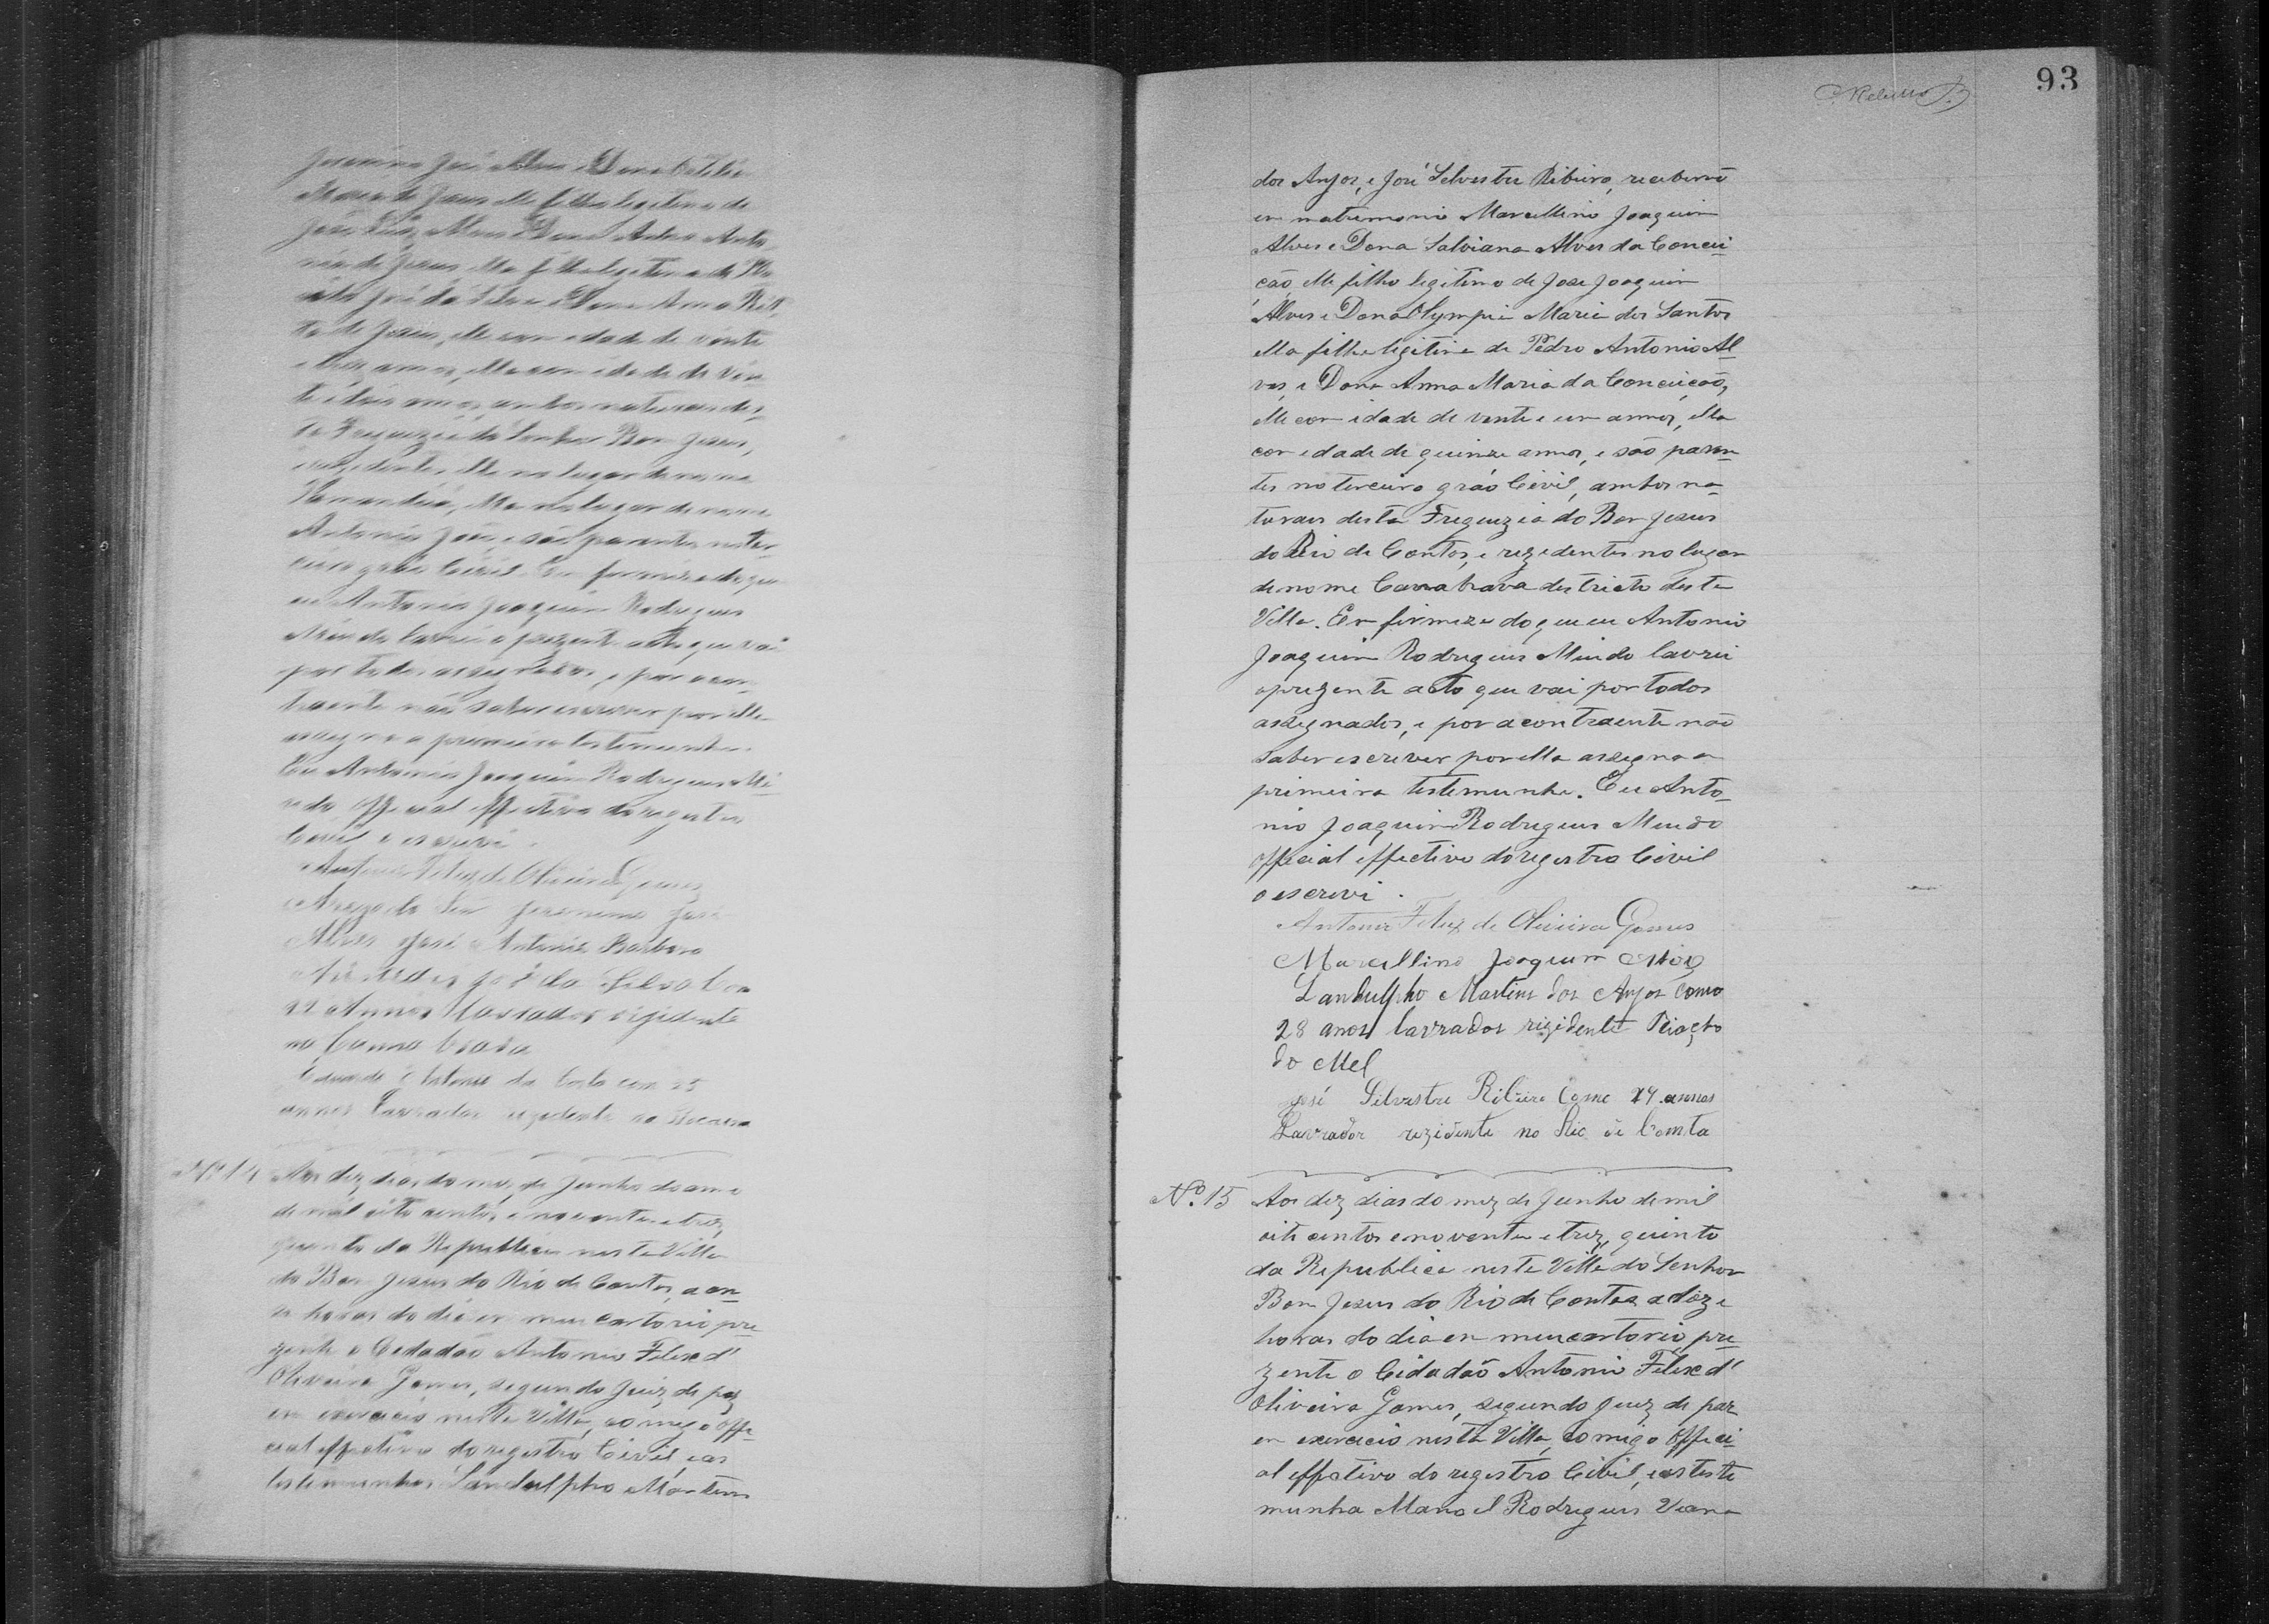 Jeronimo José Alves e Dona Otilia
Maria de Jesus elle filho legitimo de
José Luiz Alves e Dona Anna Anto
nia de Jesus, ella filha legitima de
José da Silva e Dona Anna Rit
ta de Jesus, elle com edade de vinte
e tres annos, ella com idade de vin
te e dois annos, ambos naturaes des
ta Freguezia do Senhor Bom Jesus,
rezidentes elle no lugar de nome
ella no lugar de nome
Antonio João, e são parentes no ter
ceiro gráo Civil. Em firmeza do que
eu Antonio Joaquim Rodrigues
Mindo lavrei o prezente acto que vai
por todos assignados, e por a con
traente não saber escrever por ella
assigna a primeira testemunha.
Eu Antonio Joaquim Rodrigues Mi
ndo official effectivo do registro
Civil o escrevi.
Antonio Felix de Oliveira Gomes
Arogo do Snr Jeronimo José
Alves José Antonio Barbosa
José da Silva Com
22 annos Lavrador rezidente
na Canna brava
Eduardo Antonio da Costa com 25
annos Lavrador rezidente no
Nº 14 Aos dez dias do mez de Junho do anno
de mil oito centos e noventa e trez,
quinto da Republica nesta Villa
do Bom Jesus do Rio de Contas, a on
se horas do dia em meu Cartorio pre
zente o Cidadão Antonio Felix d'
Oliveira Gomes, segundo Juiz de paz
em exercicio nesta Villa, comigo offi
cial effectivo do registro Civil, e as
testemunhas Landulpho Martins
93
dos Anjos, e José Selvestre Ribeiro, receberão
em matrimonio Marcellino Joaquim
Alves e Dona Salviana Alves da Concei
cão, elle filho legitimo de Jose Joaquim
Alves e Dona Olympia Maria dos Santos
ella filha legitima de Pedro Antonio Al
ves, e Dona Anna Maria da Conceicão,
elle com idade de vente e um annos, ella
com edade de quinze annos, e são paren
tes no terceiro gráo Civil, ambos na
turaes desta Freguezia do Bom Jesus
do Rio de Contas, e rezedentes no lugar
de nome Canabrava destricto desta
Villa. Em firmeza do que eu Antonio
Joaquim Rodrigues Mindo lavrei
o prezente acto que vai por todos
assegnados, e por a contraente não
saber escrever por ella assegna a
primeira testemunha. Eu Anto
nio Joaquim Rodrigues Mindo
official effectivo do regestro Civil
o escrevi.
Antonio Felix de Oliveira Gomes
Marcellino Joaquim Alves
Landulpho Martins dos Anjos Como
28 anos lavrador rizidente Riacho
do Mel
José Silvestre Ribeiro Come 24 annos
Lavrador rezidente no Rio de Comta
Nº 15 Aos dez dias do mez de Junho de mil
oito centos e noventa e trez, quinto
da Republica nesta Villa do Senhor
Bom Jesus do Rio de Contas a doze
horas do dia em meu cartorio, pre
zente o Cidadão Antonio Felix d'
Oliveira Gomes, segundo Juiz de paz
em exercicio nesta Villa, comigo Offici
al effectivo do regestro Civil, e as teste
munha Manoel Rodrigues Viana